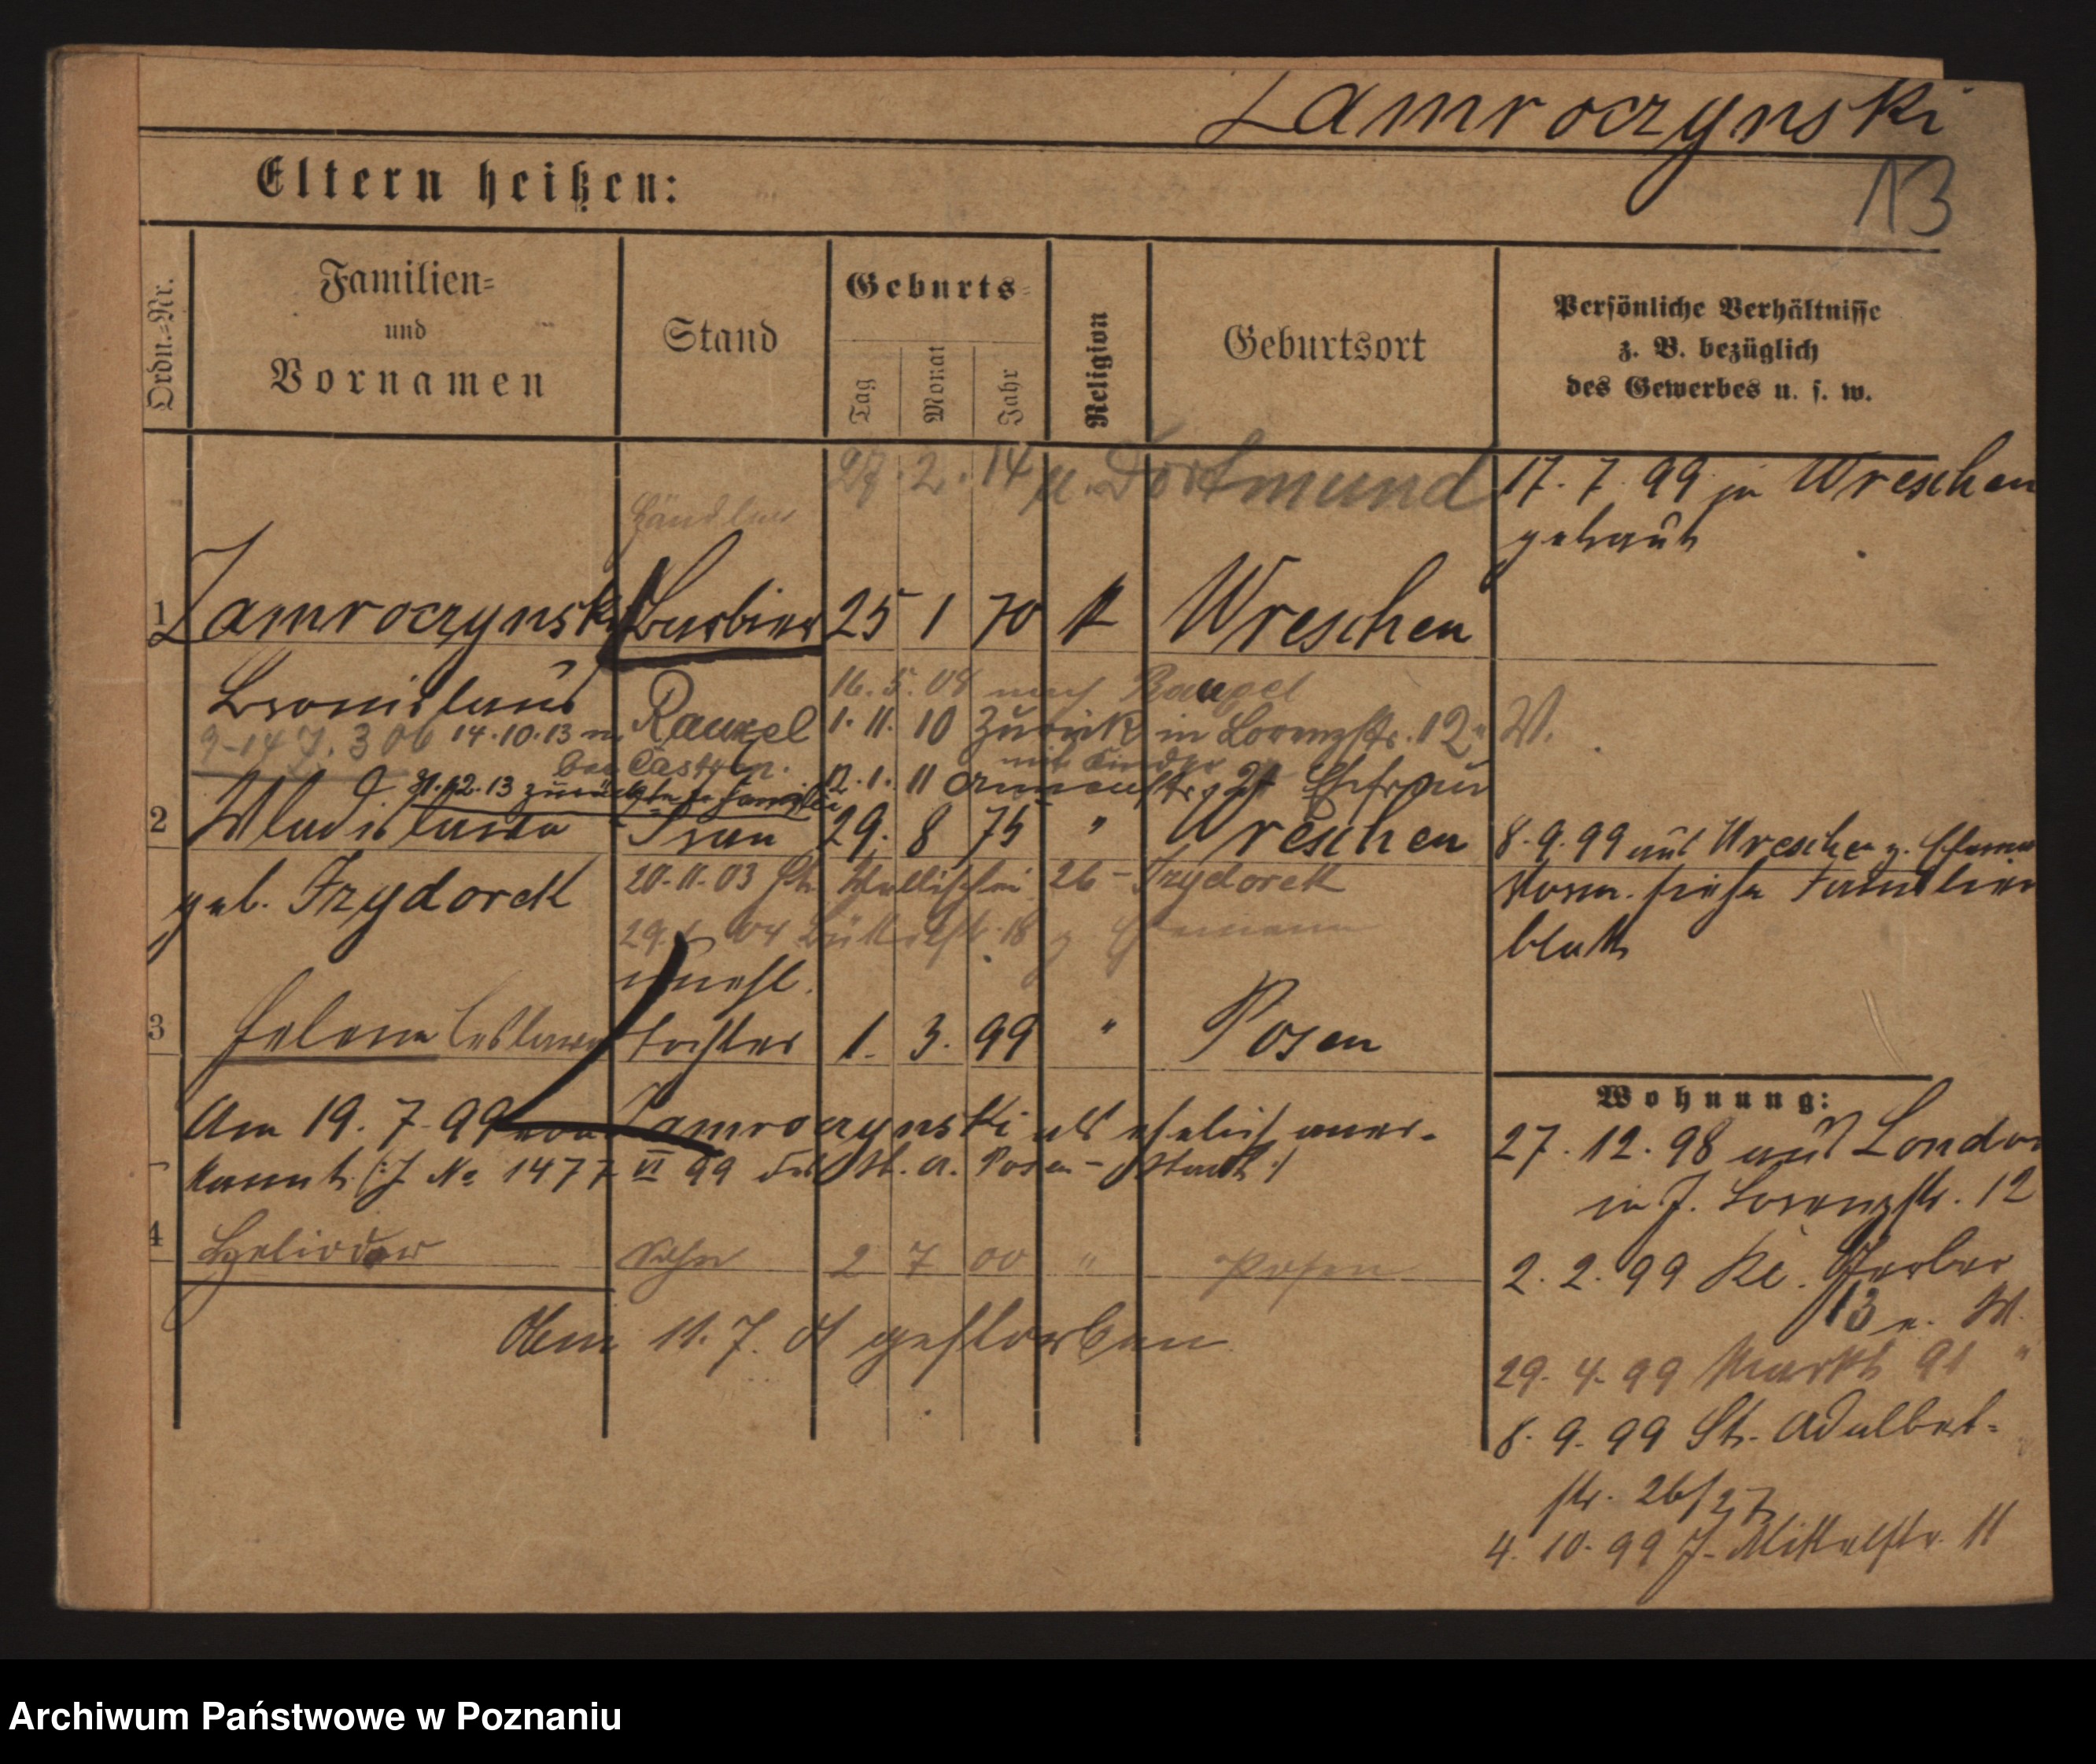 Zamroczynski
13
Eltern heißen:
Ordn.=Nr.
Familien=
und
Vornamen
Stand
Geburts=
Tag
Monat
Jahr
Religion
Geburtsort
Persönliche Verhältnisse
z. B. bezüglich
des Gewerbes u. s. w.
27. 2. 14 n. Dortmund
17. 7. 99 in Wreschen
getraut
Händler
1 Zamroczynski Barbier 25 1 70 k Wreschen
Bronislaus
16. 5. 08 nach Rauxel
14.10.13 n. Rauxel
1. 11. 10 zurück in Lorenzstr. 12
W.
bei Castrop.
mit Kinder
31.12.13 zurück
12. 1. 11 Ehefrau
2 Wladislawa Frau 29. 8 75 " Wreschen
8. 9. 99 aus Wreschen z. Ehemann
geb. Frydorek
20. 11. 03 Wallischei 26 - Frydorek
siehe Familien
blatt
29. 04 Büttelstr. 18 z. Ehemann
unehl.
3 Helena Tochter 1. 3. 99 " Posen
Am 19. 7. 99 von Zamroczynski als ehelich aner-
kannt (: J. No 1477 VI 99 des St. A. Posen - Stadt :)
4 Heliodor Sohn 2 7 00 " Posen
11. 7. 01 gestorben
Wohnung:
27. 12. 98 aus London
in J. Lorenzstr. 12
2. 2. 99 Kl. Gerber
13 n. W.
29. 4. 99 Markt 91 "
8. 9. 99 St. Adalbert-
str. 26/27
4. 10. 99 J. Mittelstr. 11
Archiwum Państwowe w Poznaniu